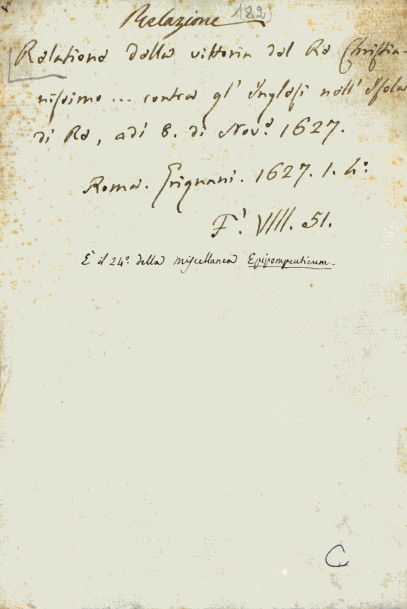 Relazione 182)
Relatione della vittoria del Re Christia-
nissimo ... contra gl' Inglesi nell' Isola
di Re, adi 8. di Nov.e 1627.
Roma. Grignani. 1627. 1. 4°.
F.' VIII. 51.
È il 24° della miscellanea Epipompeuticum.
C